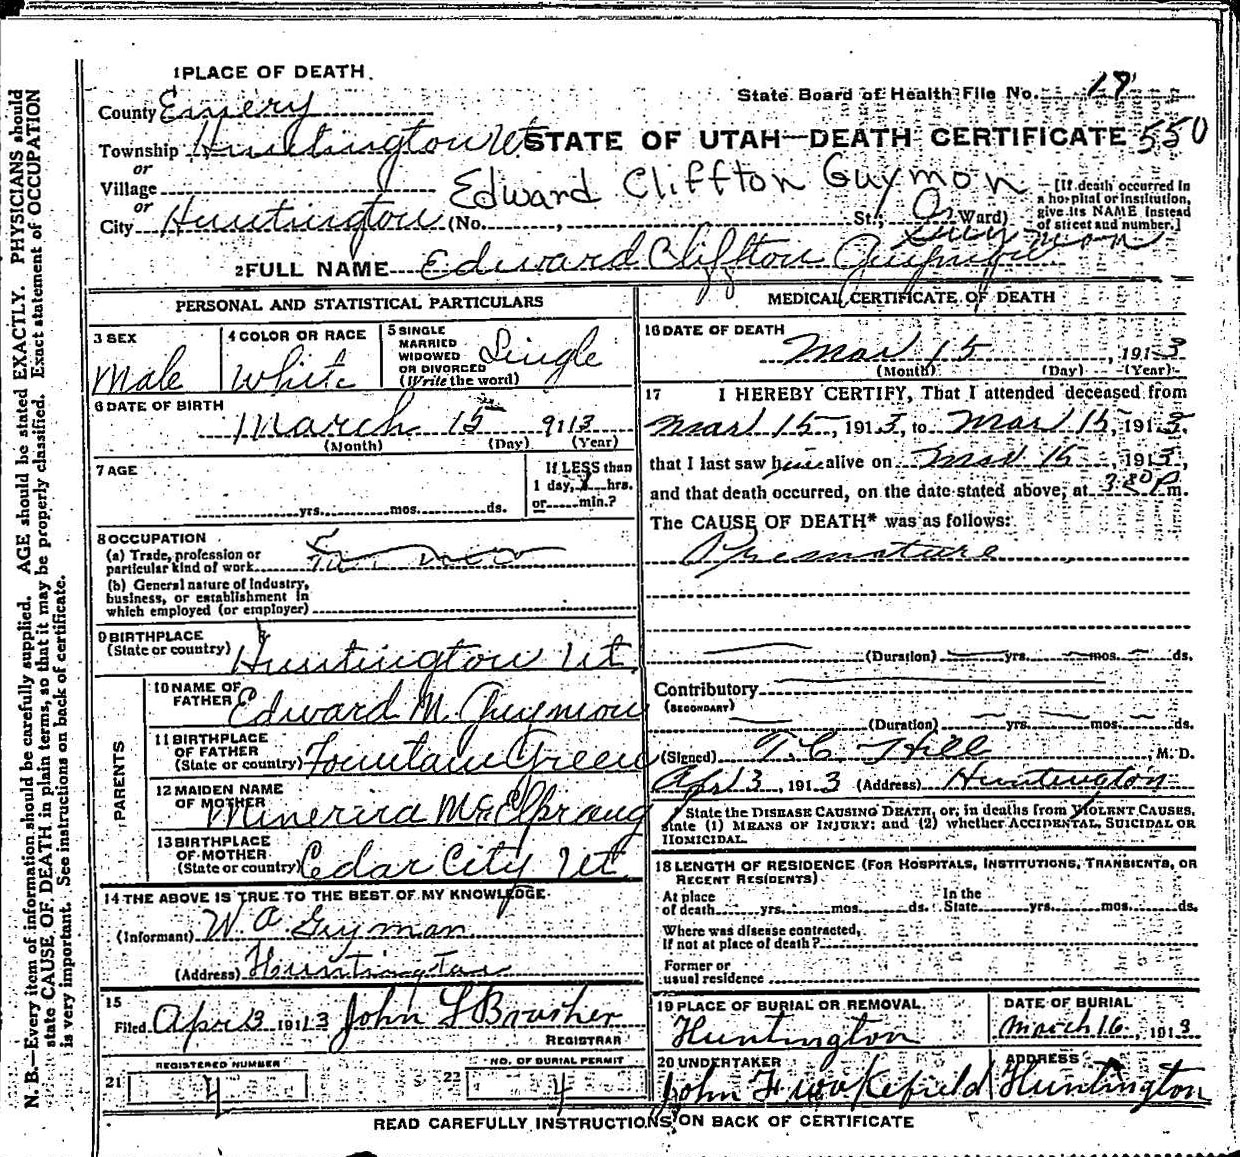 1 PLACE OF DEATH.
State Board of Health File No. 19
County Emery
STATE OF UTAH—DEATH CERTIFICATE 550
Township Huntington Ut
or
Village
Edward Cliffton Guymon
[If death occurred in
a hospital or institution,
give its NAME instead
of street and number.]
or
City Huntington (No. , St., Ward)
2 FULL NAME Edward Cliffton Guymon
PERSONAL AND STATISTICAL PARTICULARS
3 SEX
Male
4 COLOR OR RACE
White
5 SINGLE
MARRIED
WIDOWED
OR DIVORCED
(Write the word)
Single
6 DATE OF BIRTH
March 15 1913
(Month) (Day) (Year)
7 AGE
yrs. mos. ds.
If LESS than
1 day, hrs.
or min.?
8 OCCUPATION
(a) Trade, profession or
particular kind of work
(b) General nature of Industry,
business, or establishment in
which employed (or employer)
9 BIRTHPLACE
(State or country) Huntington Ut
PARENTS
10 NAME OF
FATHER Edward M. Guymon
11 BIRTHPLACE
OF FATHER
(State or country) Fountain Green
12 MAIDEN NAME
OF MOTHER
13 BIRTHPLACE
OF MOTHER
(State or country) Cedar City Ut.
14 THE ABOVE IS TRUE TO THE BEST OF MY KNOWLEDGE.
(Informant) W. A. Guyman
(Address) Huntington
15
Filed Apr 3 1913 John L Brasher
REGISTRAR
21
REGISTERED NUMBER
4
22
NO. OF BURIAL PERMIT
4
MEDICAL CERTIFICATE OF DEATH
16 DATE OF DEATH
Mar 15, 1913
(Month) (Day) (Year)
17 I HEREBY CERTIFY, That I attended deceased from
Mar 15, 1913, to Mar 15, 1913,
that I last saw him alive on Mar 15, 1913,
and that death occurred, on the date stated above, at 3:30 P m.
The CAUSE OF DEATH* was as follows:
Premature
(Duration) yrs. mos. ds.
Contributory
(SECONDARY)
(Duration) yrs. mos. ds.
(Signed) T. C. Hill, M. D.
Apr 3, 1913 (Address) Huntington
State the DISEASE CAUSING DEATH, or, in deaths from VIOLENT CAUSES,
state (1) MEANS OF INJURY; and (2) whether ACCIDENTAL, SUICIDAL OR
HOMICIDAL.
18 LENGTH OF RESIDENCE (FOR HOSPITALS, INSTITUTIONS, TRANSIENTS, OR
RECENT RESIDENTS)
At place
of death yrs. mos. ds.
In the
State yrs. mos. ds.
Where was disease contracted,
if not at place of death?
Former or
usual residence
19 PLACE OF BURIAL OR REMOVAL.
Huntington
DATE OF BURIAL
March 16, 1913
20 UNDERTAKER
John F Wakefield
ADDRESS
Huntington
READ CAREFULLY INSTRUCTIONS ON BACK OF CERTIFICATE
N. B.—Every item of information should be carefully supplied. AGE should be stated EXACTLY. PHYSICIANS should
state CAUSE OF DEATH in plain terms, so that it may be properly classified. Exact statement of OCCUPATION
is very important. See instructions on back of certificate.